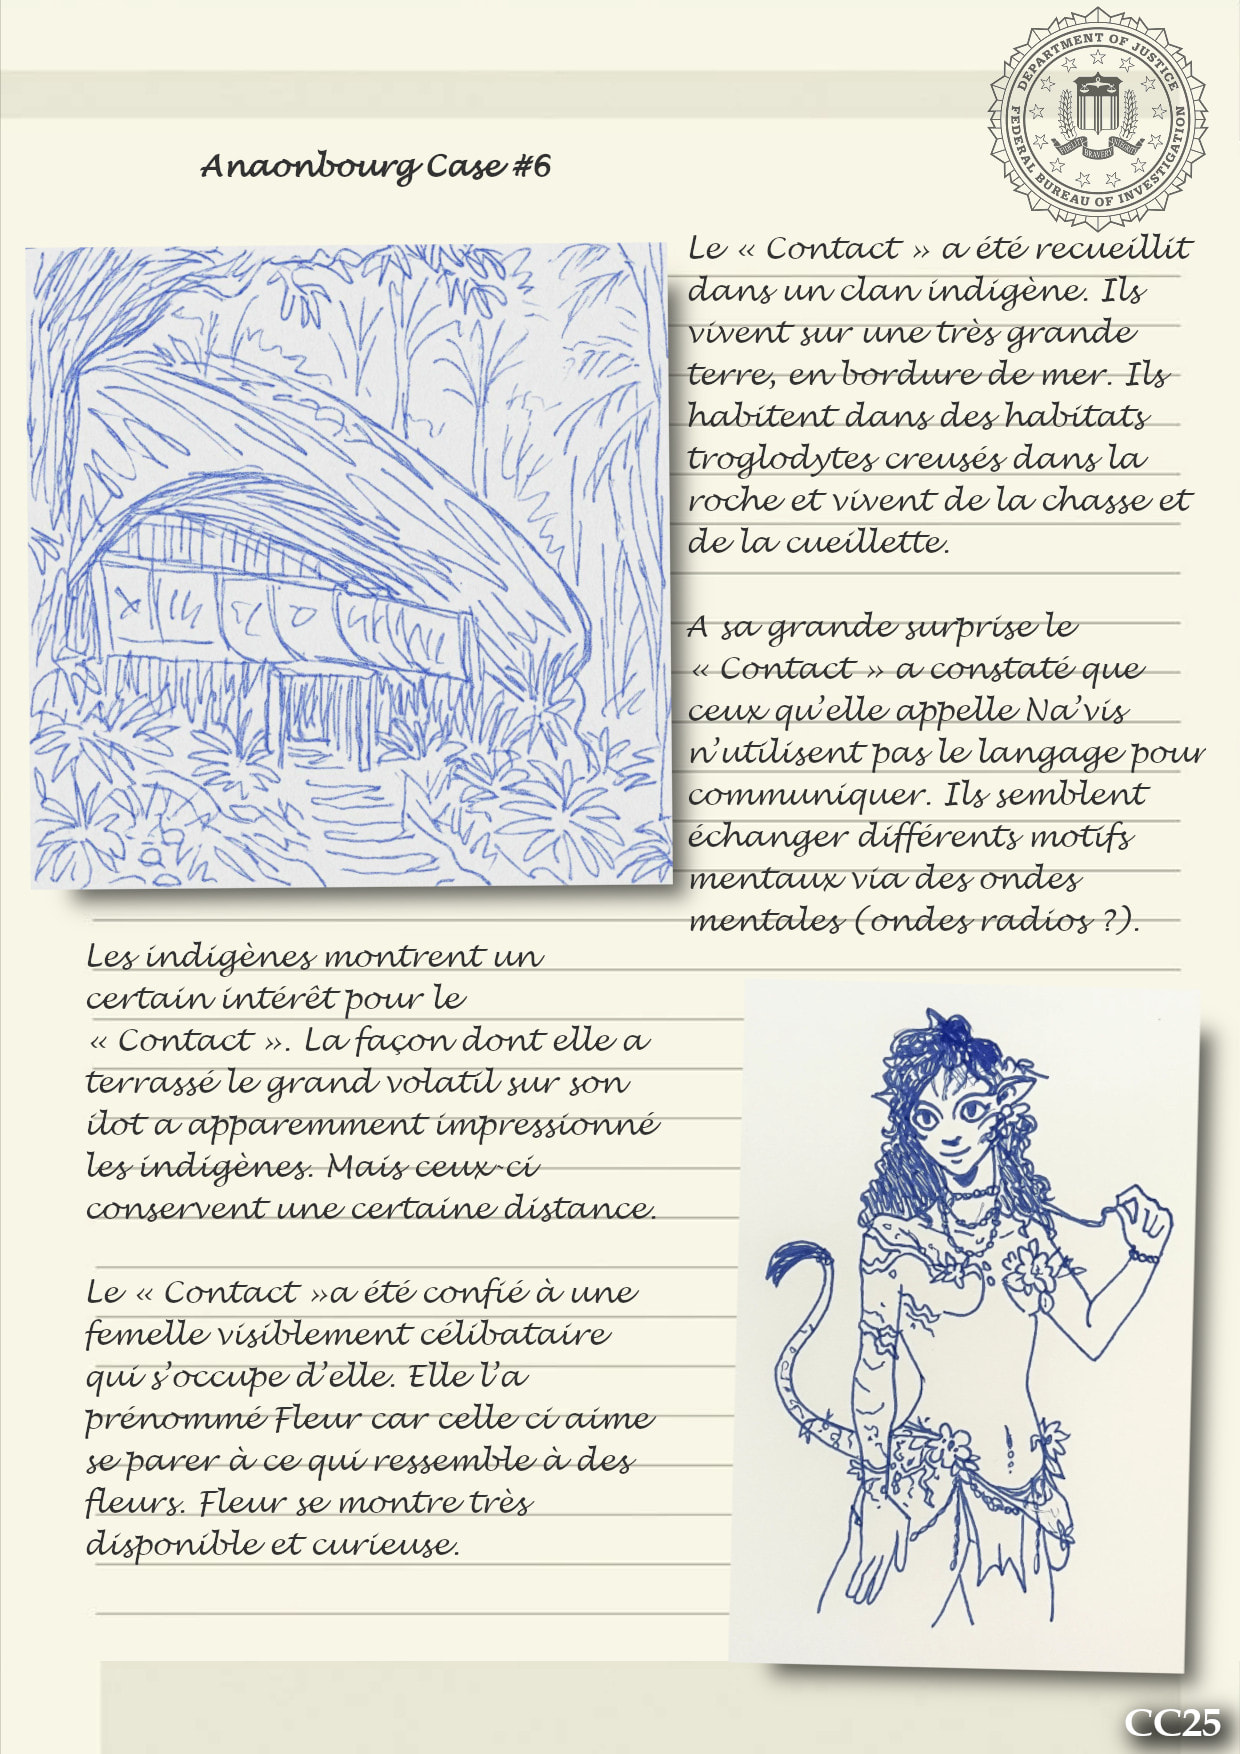 DEPARTMENT OF JUSTICE
FEDERAL BUREAU OF INVESTIGATION
FIDELITY BRAVERY INTEGRITY
Anaonbourg Case #6
Le « Contact » a été recueillit
dans un clan indigène. Ils
vivent sur une très grande
terre, en bordure de mer. Ils
habitent dans des habitats
troglodytes creusés dans la
roche et vivent de la chasse et
de la cueillette.
A sa grande surprise le
« Contact » a constaté que
ceux qu’elle appelle Na’vis
n’utilisent pas le langage pour
communiquer. Ils semblent
échanger différents motifs
mentaux via des ondes
mentales (ondes radios ?).
Les indigènes montrent un
certain intérêt pour le
« Contact ». La façon dont elle a
terrassé le grand volatil sur son
ilot a apparemment impressionné
les indigènes. Mais ceux-ci
conservent une certaine distance.
Le « Contact »a été confié à une
femelle visiblement célibataire
qui s’occupe d’elle. Elle l’a
prénommé Fleur car celle ci aime
se parer à ce qui ressemble à des
fleurs. Fleur se montre très
disponible et curieuse.
CC25